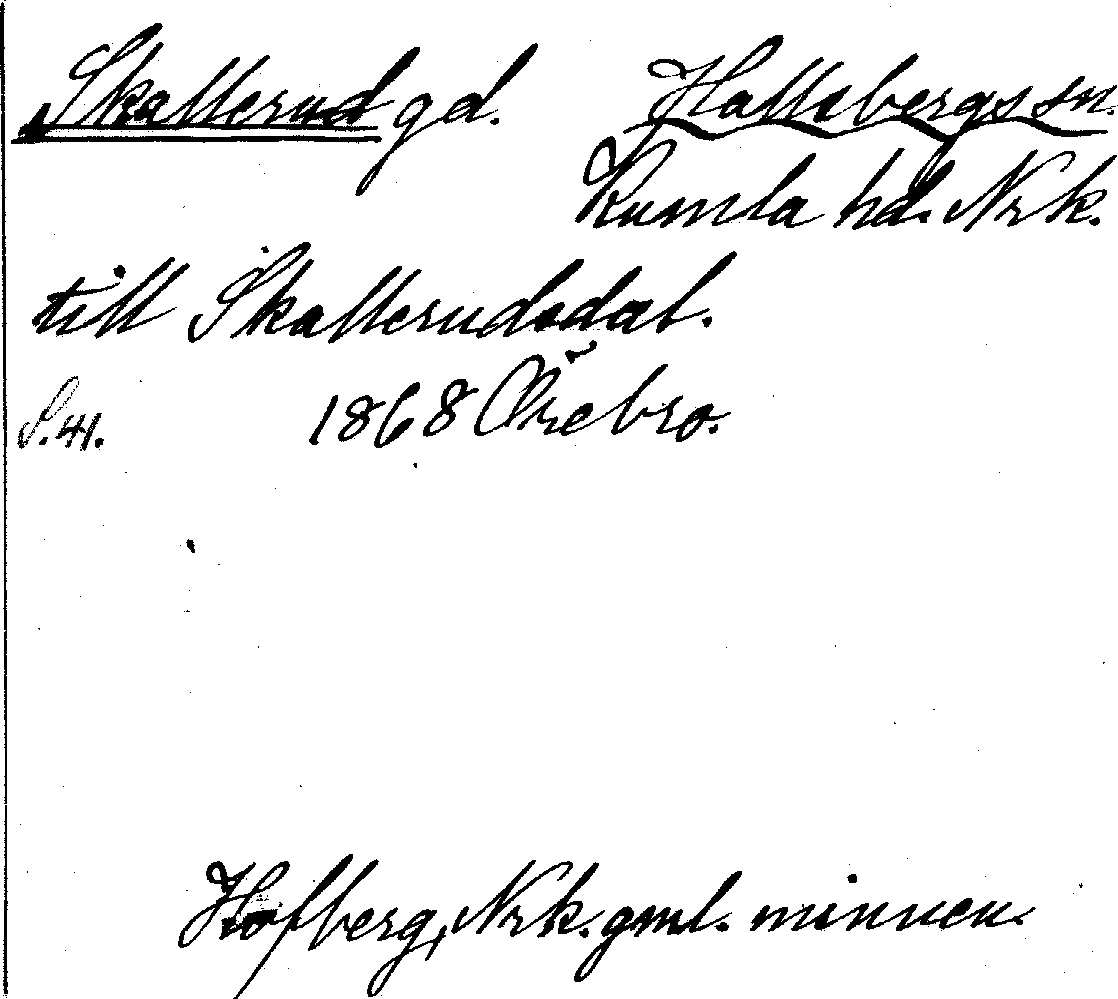 Skallerud gd. Hallsbergs sn.
Kumla hd. Nrk.
till Skallerudsdal.
S. 41. 1868 Örebro.
Hofberg, Nrk. gml. minnen.